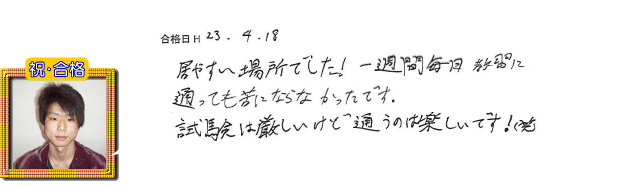 合格日 H 23. 4. 18
祝・合格
居やすい場所でした！一週間毎日教習に
通っても苦にならなかったです。
試験は厳しいけど通うのは楽しいです！